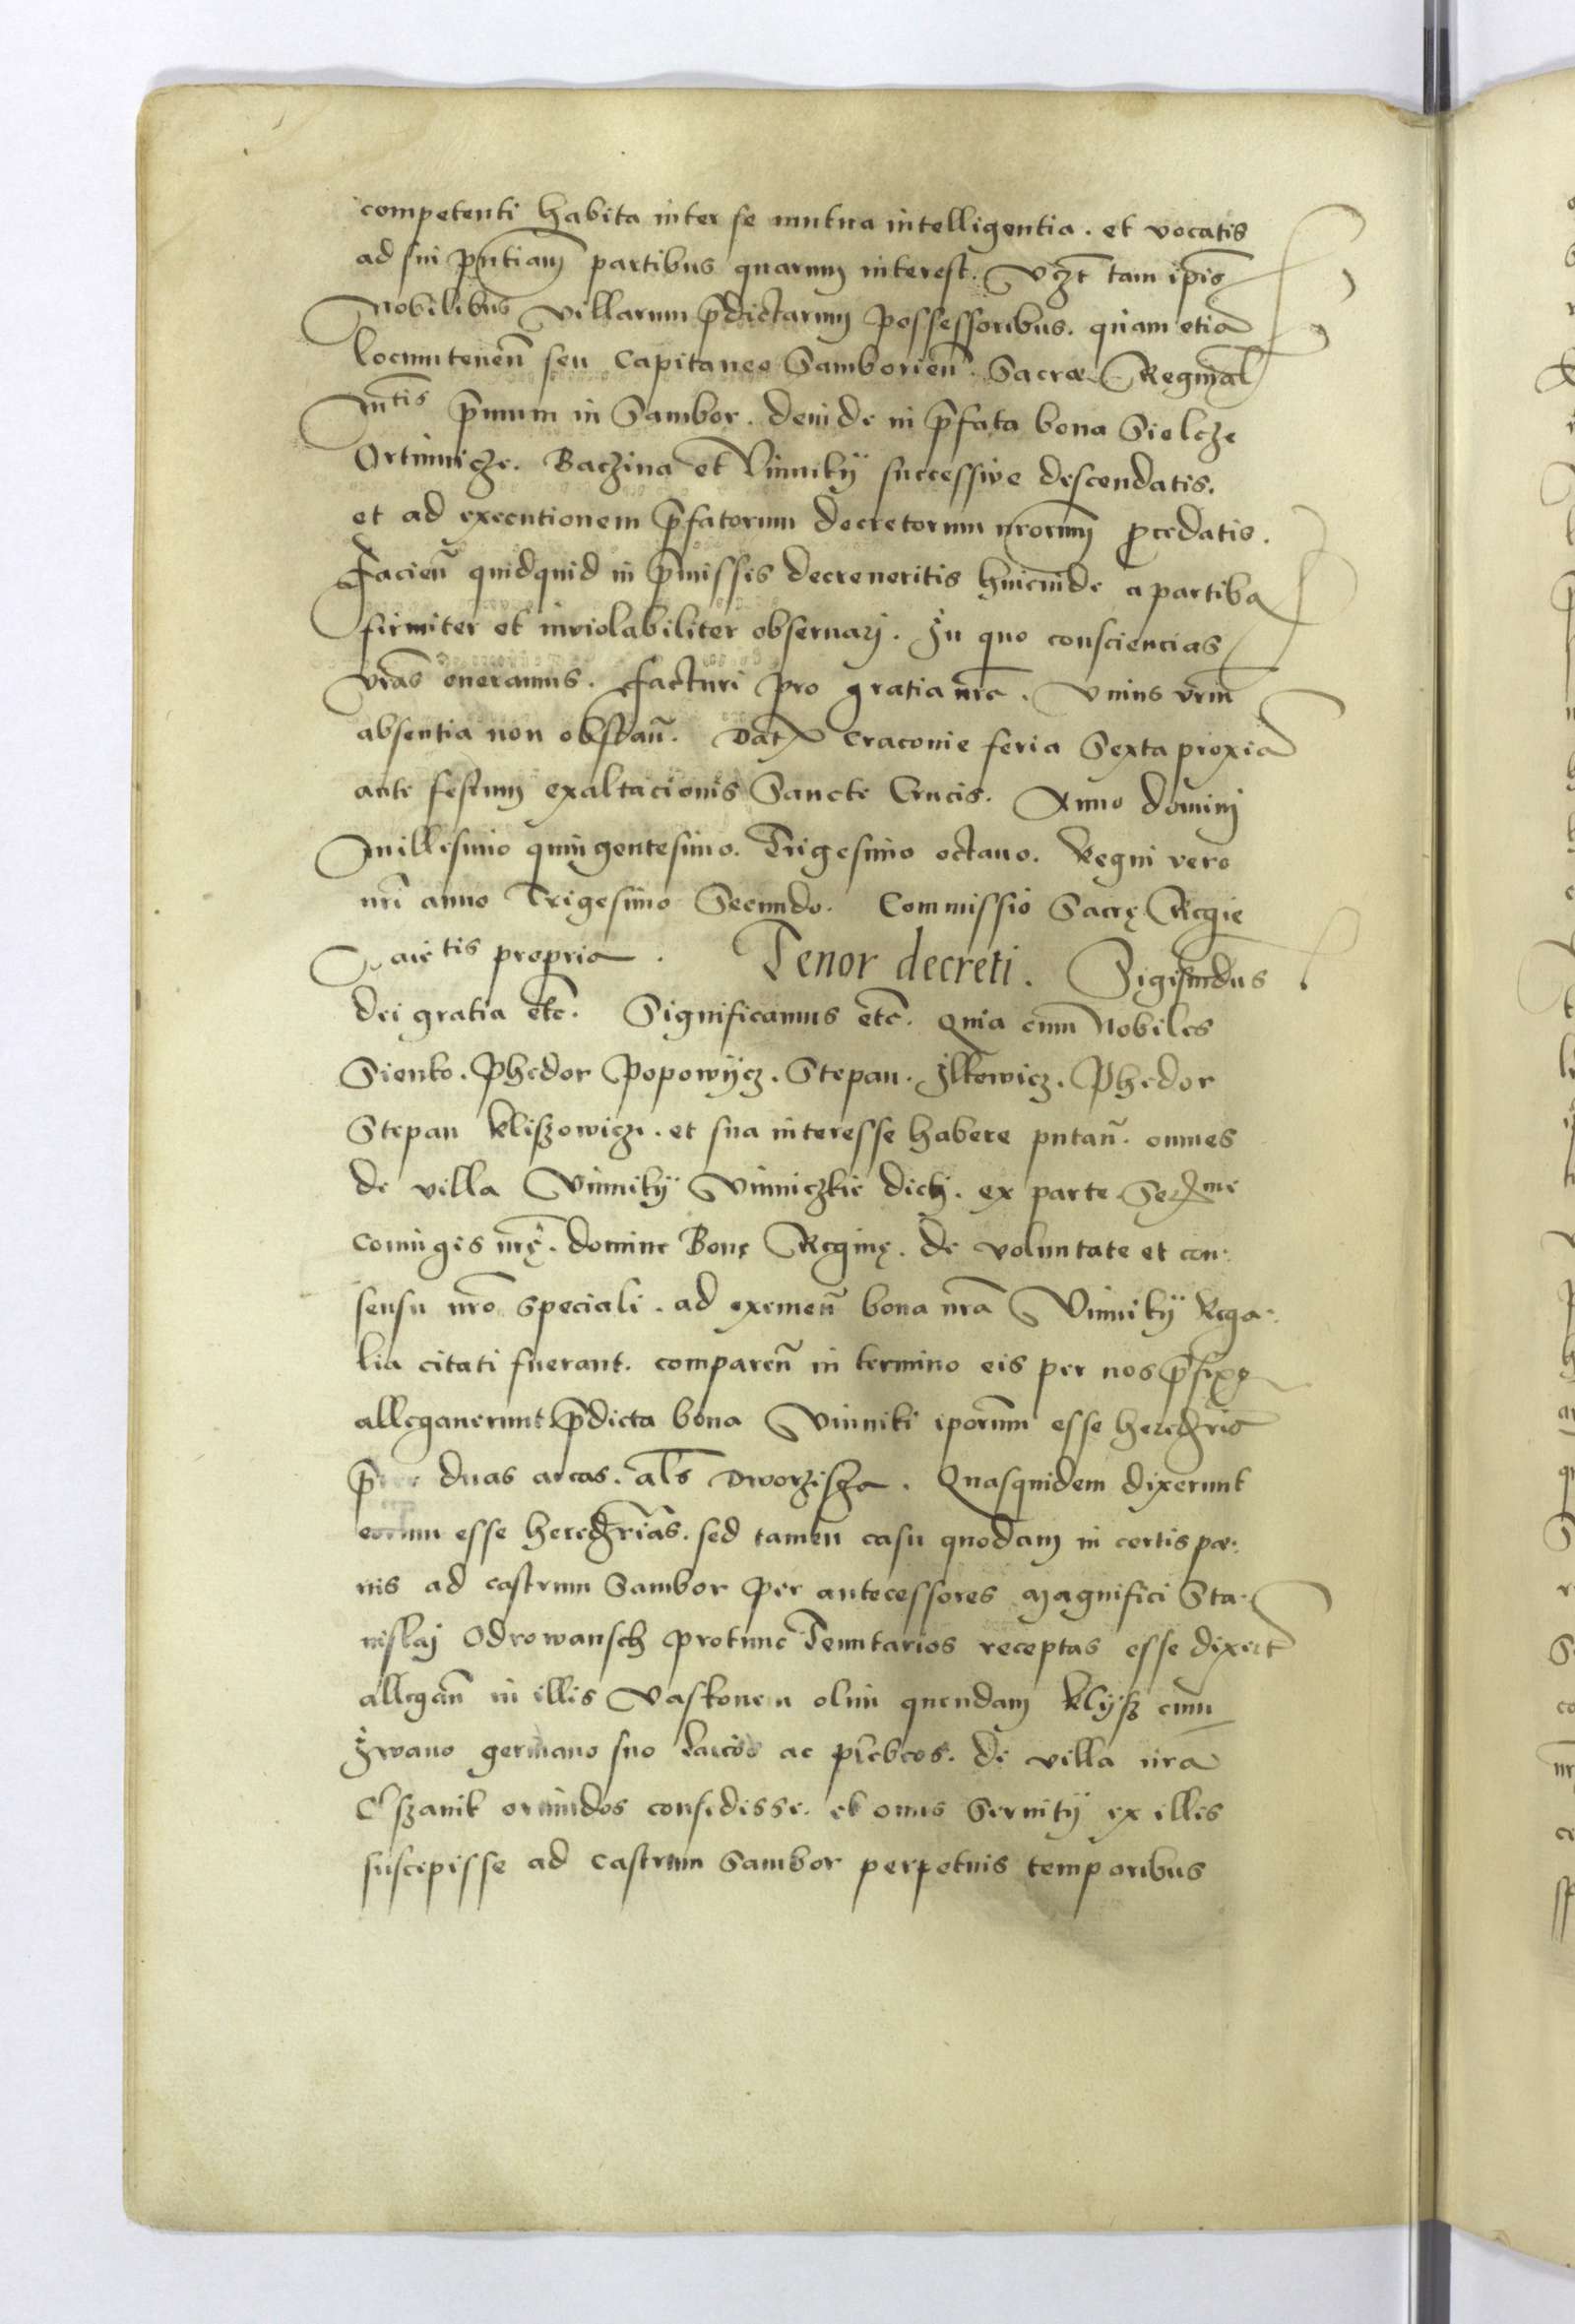 competenti habita inter se mutua intelligentia. et vocatis
ad sui pntiam partibus quarum interest. Vczt tam ipis
Nobilibus villarum pdictarum possessoribus. quam etia
locumtenen seu Capitaneo Samborien. Sacræ Reginal
Mtis primum in Sambor. deinde in pfata bona Sielcze
Ortinnicze. Baczina et Vinniky successive descendatis.
et ad executionem pfatorum decretorum nrorum pcedatis.
Facien quidquid in pmissis decreveritis hincinde a partibq
firmiter et inviolabiliter observarj. In quo consciencias
vras oneramus. Facturi pro gratia nra. Unius vrm
absentia non obstan. Dat Cracovie feria Sexta proxia
ante festum exaltacionis Sancte Crucis. Anno dominj
Millesimo quingentesimo. Trigesimo octavo. Regni vero
nri anno Trigesimo Secundo. Commissio Sacrę Regie
Maietis propria. Tenor decreti. Sigismdus
dei gratia etc. Significamus etc. Quia cum Nobiles
Sienko. Phedor Popowycz. Stepan. Ilkowicz. Phedor
Stepan Kliszowicze. et sua interesse habere putan. omnes
de villa Vinniky Vinniczkie dictj. ex parte Serme
coniugis nrę. domine Bonę Reginę. de voluntate et con-
sensu nro speciali. ad exemen bona nra Vinniky Rega-
lia citati fuerant. comparen in termino eis per nos pfixo
allegaverunt pdicta bona Vinniki iporum esse hereditris
duas areas. als Dworzisza. Quasquidem dixerunt
eorum esse heredrias. sed tamen casu quodam in certis pœ-
nis ad castrum Sambor per antecessores Magnifici Sta-
nislaj Odrowansch protunc Tenutarios receptas esse dixert
allegan in illis Vaskonem olim quendam Klysz cum
Iwano germano suo laicos ac plebeos. de villa nra
Czanik oriundos consedisse. et onus Servity ex illis
suscepisse ad castrum Sambor perpetuis temporibus